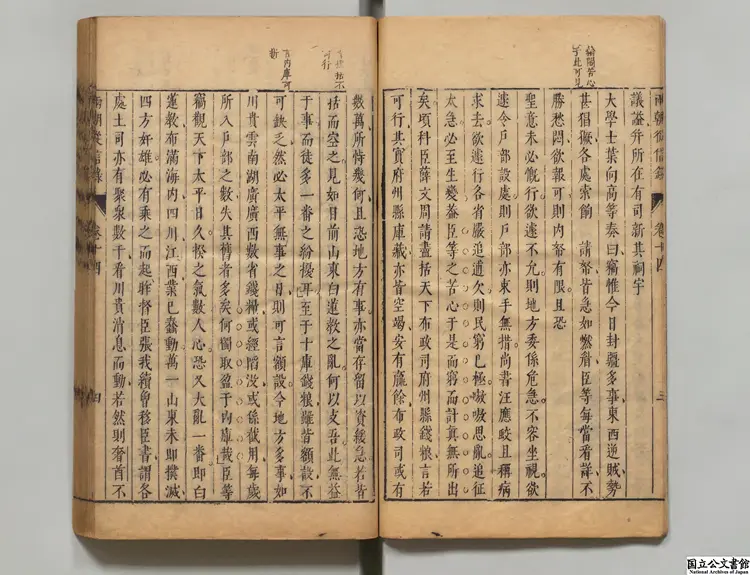 兩朝從信錄
卷十四
三
論開苦心
于此可見
議諡并所在有司新其祠宇
大學士葉向高等奏曰竊惟今日封疆多事東西逆賊勢
甚猖獗各處索餉
請帑皆急如燃眉臣等每當看詳不
勝愁悶欲報可則內帑有限且恐
聖意未必慨行欲遂不允則地方委係危急不容坐視欲
逑令戶部設處則戶部亦束手無措尚書汪應蛟且稱病
求去欲遂行各省嚴追逋欠則民窮已極嗷嗷思亂追征
太急必至生變蓋臣等之苦心于是而窮而計真無所出
矣頃科臣薛文周請盡括天下布政司府州縣錢粮言若
可行其實府州縣庫藏亦皆空竭安有嬴餘布政司或有
括不
可行
言內庫可
數萬所恃幾何且恐地方有事亦當存留以資緩急若皆
括而空之見如日前山東白蓮教之亂何以支吾此無益
于事而徒多一番之紛擾耳至于十庫錢粮雖皆額設不
可缺乏然必太平無事之日則可言額設今地方多事如
川貴雲南湖廣廣西數省錢糧或經蹈沒或係截用每歲
所入戶部之數失其舊者多矣何獨取盈于內庫哉臣等
竊觀天下太平日久恹之氣數人心恐又大亂一番即白
蓮教布滿海內四川江西業已蠢動萬一山東未即撲滅
四方奸雄必有乘之而起聯督臣張我續曾移臣書謂各
處土司亦有聚眾數千看川貴消息而動若然則奢酋不
兩朝從信錄
卷十四
四
国立公文書館
National Archives of Japan